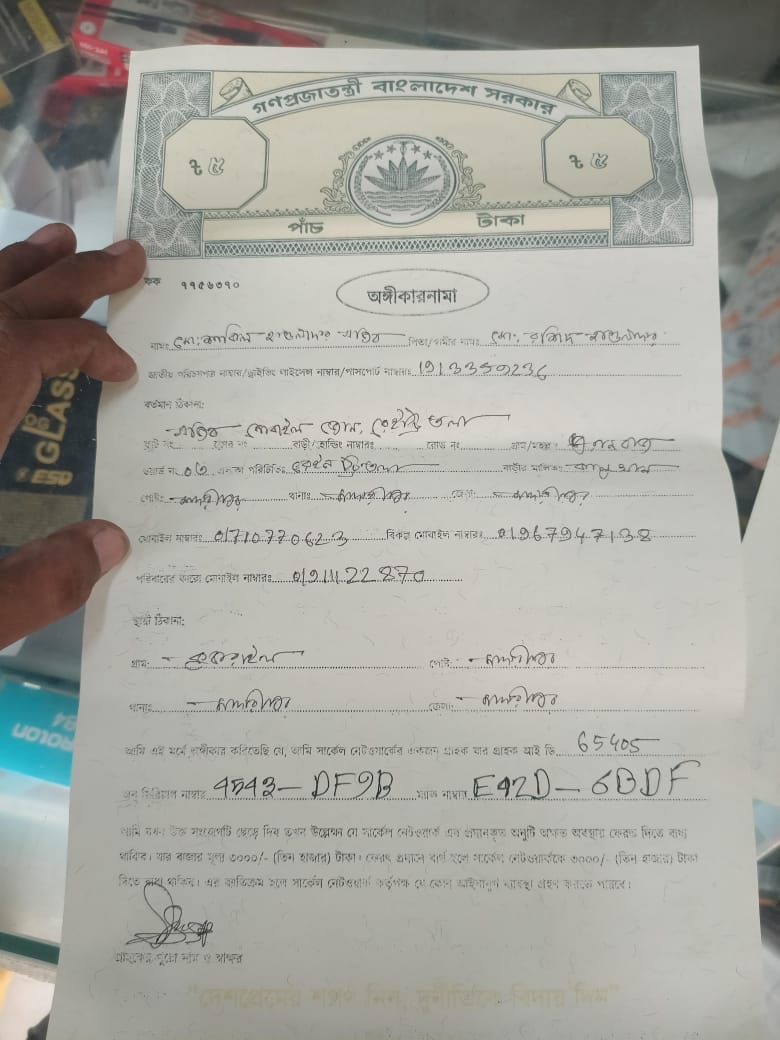 গণপ্রজাতন্ত্রী বাংলাদেশ সরকার
৳ ৫
৳ ৫
পাঁচ টাকা
কক ৭৭৫৬৩৭০
অঙ্গীকারনামা
নামঃ মোঃ হাওলাদার পিতা/স্বামীর নামঃ মোঃ রশিদ হাওলাদার
জাতীয় পরিচয়পত্র নাম্বার/ড্রাইভিং লাইসেন্স নাম্বার/পাসপোর্ট নাম্বারঃ 1913359236
বর্তমান ঠিকানা:
মোবাইল জোন,
ফ্ল্যাট নং বাড়ী/হোল্ডিং নাম্বারঃ রোড নং গ্রাম/মহল্লা:
ওয়ার্ড নং 03 এলাকা পরিচিতিঃ বাড়ীর মালিকঃ
পোষ্ট: মাদারীপুর থানাঃ মাদারীপুর জেলা: মাদারীপুর
মোবাইল নাম্বারঃ 01710770623 বিকল্প মোবাইল নাম্বারঃ 01967947138
পরিবারের কারো মোবাইল নাম্বারঃ 01911122870
স্থায়ী ঠিকানা:
গ্রাম: পোষ্ট: মাদারীপুর
থানাঃ মাদারীপুর জেলা: মাদারীপুর
আমি এই মর্মে অঙ্গীকার করিতেছি যে, আমি সার্কেল নেটওয়ার্কের একজন গ্রাহক যার গ্রাহক আই ডি 65405
অনু সিরিয়াল নাম্বার 4543-DF9B ম্যাক নাম্বার E42D-6BDF
আমি যখন উক্ত সংযোগটি ছেড়ে দিব তখন উল্লেখ্য যে সার্কেল নেটওয়ার্ক এর প্রদানকৃত অনুটি অক্ষত অবস্থায় ফেরত দিতে বাধ্য
থাকিব। যার বাজার মূল্য ৩০০০/- (তিন হাজার) টাকা। ফেরৎ প্রদানে ব্যর্থ হলে সার্কেল নেটওয়ার্ককে ৩০০০/- (তিন হাজার) টাকা
দিতে বাধ্য থাকিব। এর ব্যতিক্রম হলে সার্কেল নেটওয়ার্ক কর্তৃপক্ষ যে কোন আইনানুগ ব্যবস্থা গ্রহন করতে পারবে।
গ্রাহকের পুরো নাম ও স্বাক্ষর
"দেশপ্রেমের শপথ নিন, দুর্নীতিকে বিদায় দিন"
GLASS
ESD